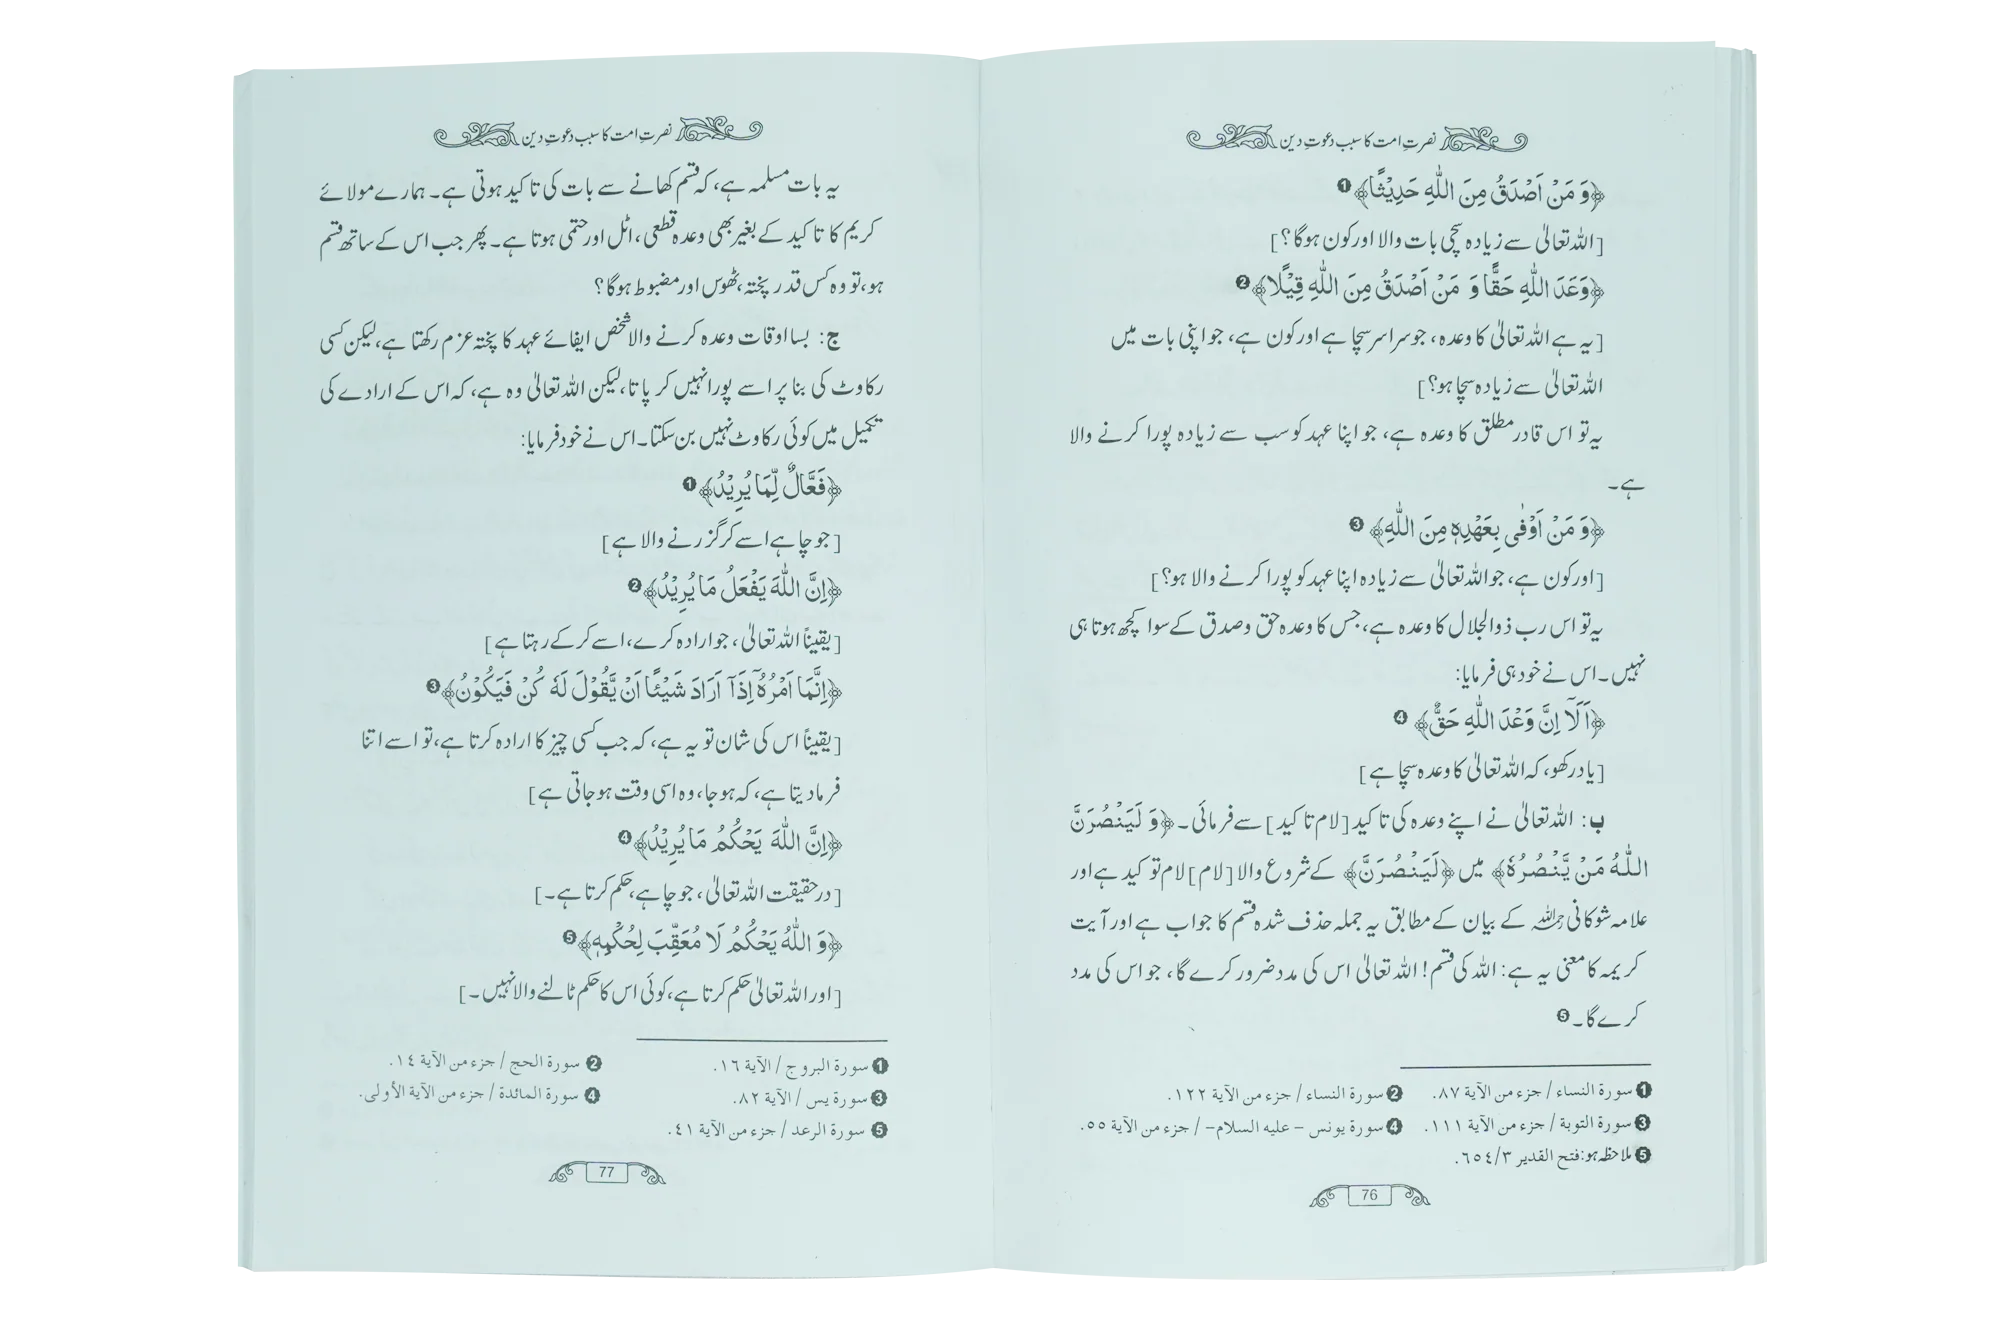 نصرتِ امت کا سبب دعوتِ دین
﴿وَ مَنْ اَصْدَقُ مِنَ اللّٰهِ حَدِیْثًا﴾ ❶
[اللہ تعالیٰ سے زیادہ سچی بات والا اور کون ہوگا؟]
﴿وَعَدَ اللّٰهِ حَقًّا وَ مَنْ اَصْدَقُ مِنَ اللّٰهِ قِیْلًا﴾ ❷
[یہ ہے اللہ تعالیٰ کا وعدہ، جو سراسر سچا ہے اور کون ہے، جو اپنی بات میں
اللہ تعالیٰ سے زیادہ سچا ہو؟]
یہ تو اس قادر مطلق کا وعدہ ہے، جو اپنا عہد کو سب سے زیادہ پورا کرنے والا
ہے۔
﴿وَ مَنْ اَوْفٰی بِعَهْدِهٖ مِنَ اللّٰهِ﴾ ❸
[اور کون ہے، جو اللہ تعالیٰ سے زیادہ اپنا عہد کو پورا کرنے والا ہو؟]
یہ تو اس رب ذوالجلال کا وعدہ ہے، جس کا وعدہ حق و صدق کے سوا کچھ ہوتا ہی
نہیں۔ اس نے خود ہی فرمایا:
﴿اَلَآ اِنَّ وَعْدَ اللّٰهِ حَقٌّ﴾ ❹
[یاد رکھو، کہ اللہ تعالیٰ کا وعدہ سچا ہے]
ب: اللہ تعالیٰ نے اپنے وعدہ کی تاکید [لام تاکید] سے فرمائی۔ ﴿وَ لَیَنْصُرَنَّ
اللّٰهُ مَنْ یَّنْصُرُهٗ﴾ میں ﴿لَیَنْصُرَنَّ﴾ کے شروع والا [لام] لام توکید ہے اور
علامہ شوکانی رحمہ اللہ کے بیان کے مطابق یہ جملہ حذف شدہ قسم کا جواب ہے اور آیت
کریمہ کا معنی یہ ہے: اللہ کی قسم! اللہ تعالیٰ اس کی مدد ضرور کرے گا، جو اس کی مدد
کرے گا۔ ❺
❶ سورة النساء / جزء من الآية ٨٧. ❷ سورة النساء / جزء من الآية ١٢٢.
❸ سورة التوبة / جزء من الآية ١١١. ❹ سورة يونس – عليه السلام– / جزء من الآية ٥٥.
❺ ملاحظہ ہو: فتح القدير ٦٥٤/٣.
76
نصرتِ امت کا سبب دعوتِ دین
یہ بات مسلمہ ہے، کہ قسم کھانے سے بات کی تاکید ہوتی ہے۔ ہمارے مولائے
کریم کا تاکید کے بغیر بھی وعدہ قطعی، اٹل اور حتمی ہوتا ہے۔ پھر جب اس کے ساتھ قسم
ہو، تو وہ کس قدر پختہ، ٹھوس اور مضبوط ہوگا؟
ج: بسا اوقات وعدہ کرنے والا شخص ایفائے عہد کا پختہ عزم رکھتا ہے، لیکن کسی
رکاوٹ کی بنا پر اسے پورا نہیں کر پاتا، لیکن اللہ تعالیٰ وہ ہے، کہ اس کے ارادے کی
تکمیل میں کوئی رکاوٹ نہیں بن سکتا۔ اس نے خود فرمایا:
﴿فَعَّالٌ لِّمَا یُرِیْدُ﴾ ❶
[جو چاہے اسے کر گزرنے والا ہے]
﴿اِنَّ اللّٰهَ یَفْعَلُ مَا یُرِیْدُ﴾ ❷
[یقیناً اللہ تعالیٰ، جو ارادہ کرے، اسے کر کے رہتا ہے]
﴿اِنَّمَا اَمْرُهٗٓ اِذَآ اَرَادَ شَیْئًا اَنْ یَّقُوْلَ لَهٗ كُنْ فَیَكُوْنُ﴾ ❸
[یقیناً اس کی شان تو یہ ہے، کہ جب کسی چیز کا ارادہ کرتا ہے، تو اسے اتنا
فرما دیتا ہے، کہ ہو جا، وہ اسی وقت ہو جاتی ہے]
﴿اِنَّ اللّٰهَ یَحْكُمُ مَا یُرِیْدُ﴾ ❹
[درحقیقت اللہ تعالیٰ، جو چاہے، حکم کرتا ہے۔]
﴿وَ اللّٰهُ یَحْكُمُ لَا مُعَقِّبَ لِحُكْمِهٖ﴾ ❺
[اور اللہ تعالیٰ حکم کرتا ہے، کوئی اس کا حکم ٹالنے والا نہیں۔]
❶ سورة البروج / الآية ١٦. ❷ سورة الحج / جزء من الآية ١٤.
❸ سورة يس / الآية ٨٢. ❹ سورة المائدة / جزء من الآية الأولى.
❺ سورة الرعد / جزء من الآية ٤١.
77